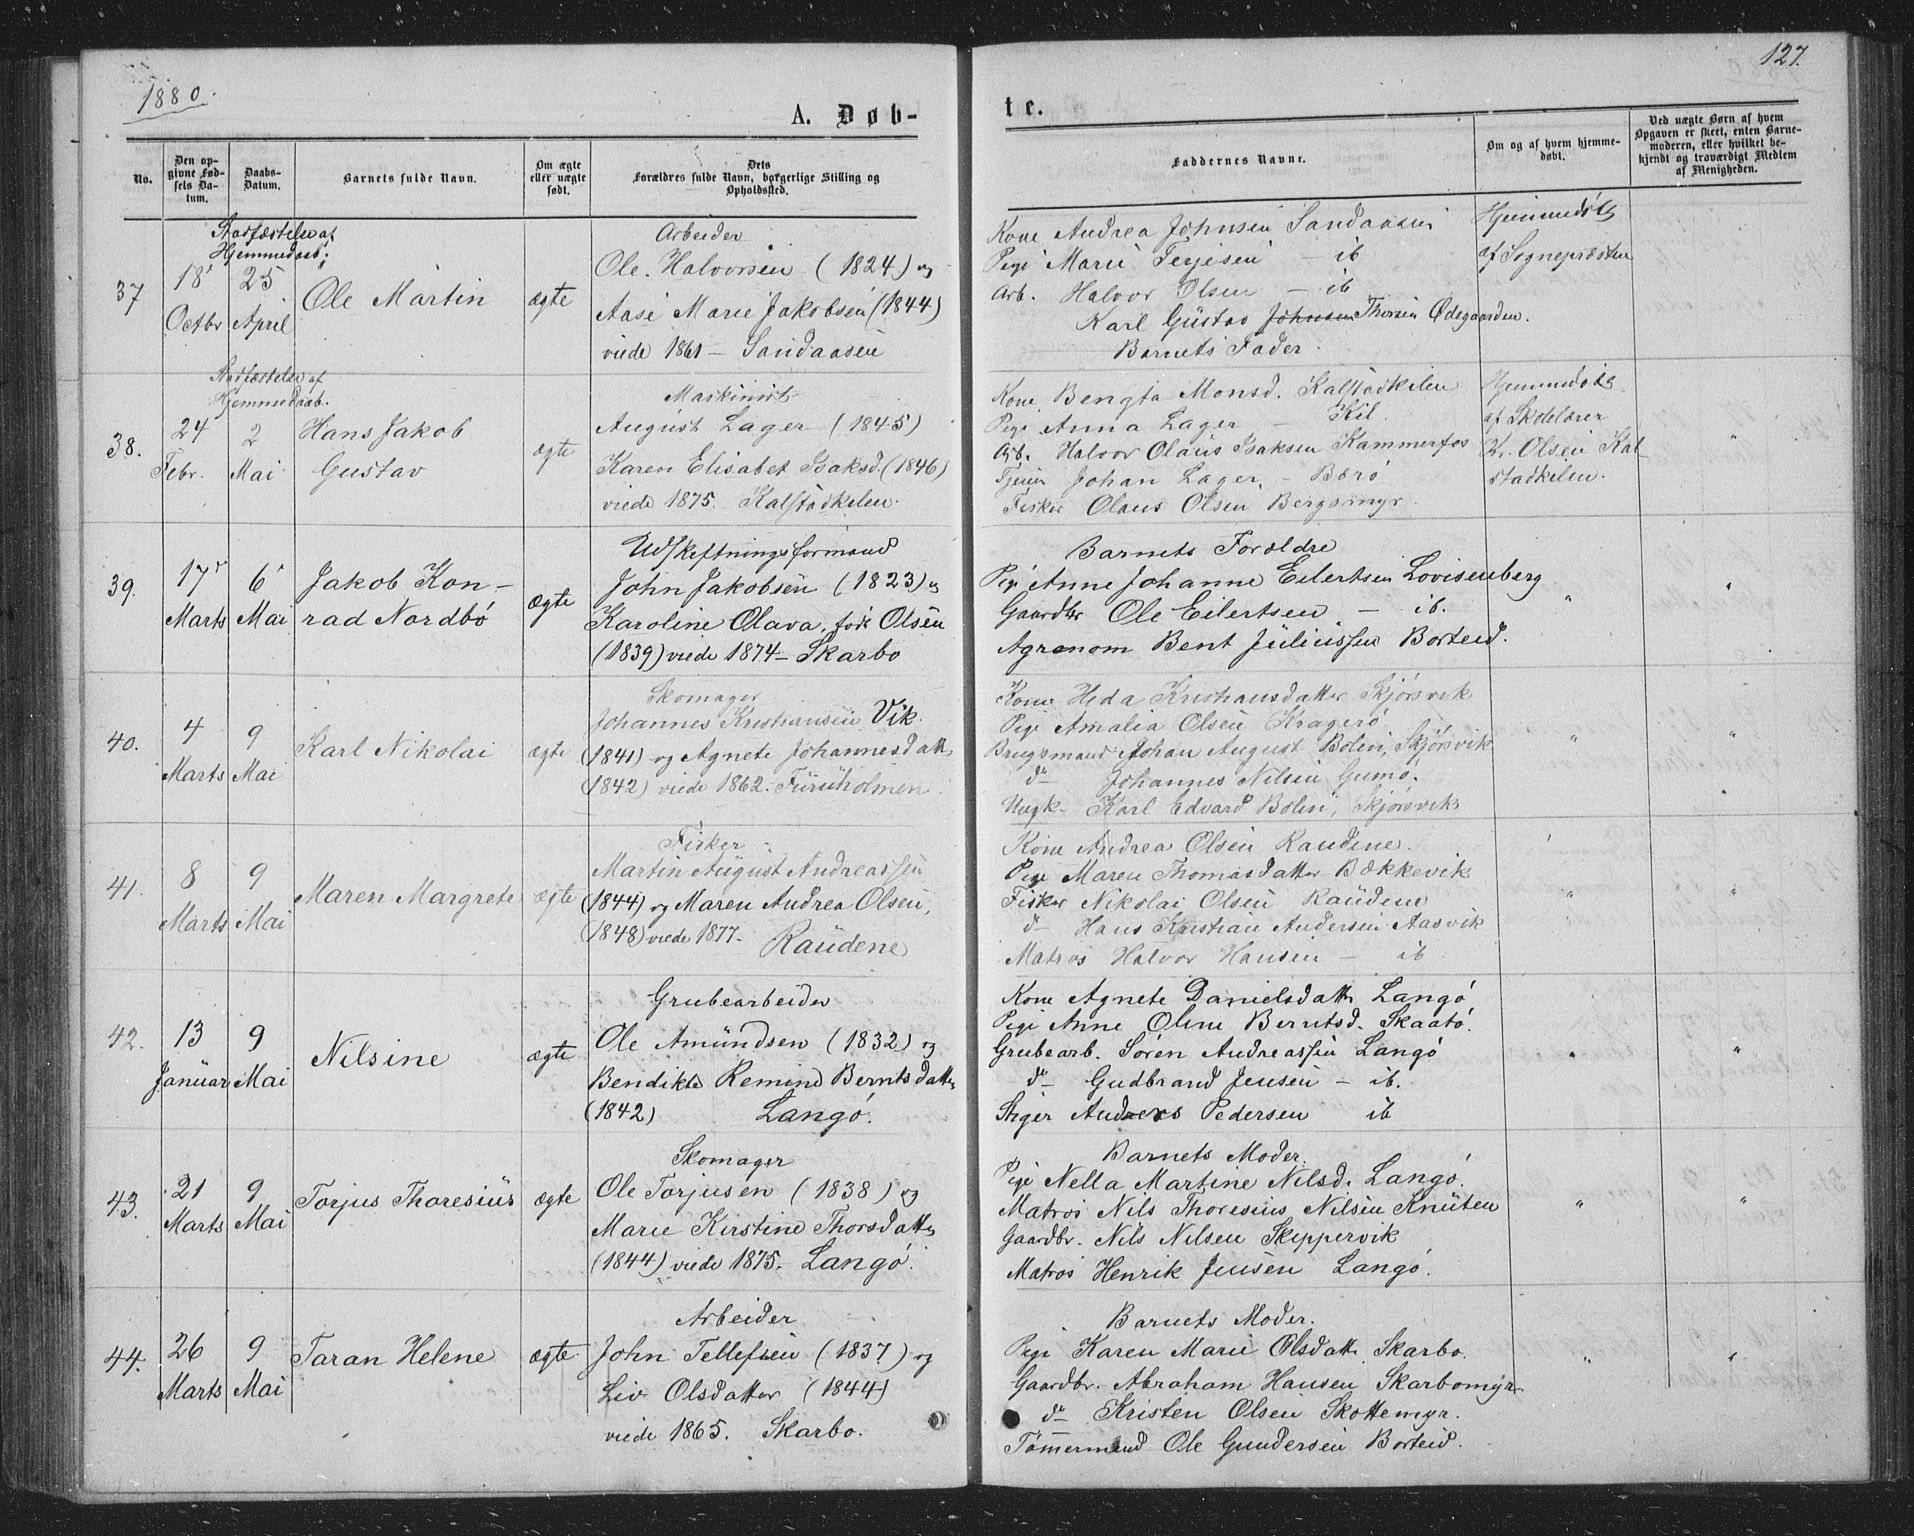 1880.
127.
A. Døb-
te.
No.
Den op-
givne Fød-
sels Da-
tum.
Daabs-
Datum.
Barnets fulde Navn.
Om ægte
eller uægte
født.
Dets
Forældres fulde Navn, borgerlige Stilling og
Opholdssted.
Faddernes Navne.
Om og af hvem hjemme-
døbt.
Ved uægte Børn af hvem
Opgaven er skeet, enten Barne-
moderen, eller hvilket be-
kjendt og troværdigt Medlem
af Menigheden.
Stadfæstelse af
Hjemmedaab;
37
18
Octbr
25
April
Ole Martin
ægte
Arbeider
Ole Halvorsen (1824) og
Aase Marie Jakobsen (1844)
viede 1861 – Sandaasen
Kone Andrea Johnsen Sandaasen
Pige Marie Terjesen – ib
Arb. Halvor Olsen – ib
Karl Gustav Johnsen Thorsen Ødegaarden.
Barnets Fader.
Hjemmedøbt
af Sognepræsten
Stadfæstelse af
Hjemmedaab.
38.
24
Febr.
2
Mai
Hans Jakob
Gustav
ægte
Maskinist
August Lager (1845)
Karen Elisabet Isaksd. (1846)
viede 1875. Kalstadkilen.
Kone Bengta Monsd. Kalstadkilen
Pige Anna Lager – Kil.
Arb. Halvor Olaus Isaksen Kammerfos
Tjener Johan Lager – Bærö
Fisker Olaus Olsen Bergsmyr.
Hjemmedøbt
af Skolelærer
K. Olsen Kal-
stadkilen.
"
39.
17
Marts
6
Mai
Jakob Kon-
rad Nordbö
ægte
Udskiftningsformand
John Jakobsen (1823) og
Karoline Olava, født Olsen
(1839) viede 1874 – Skarbo
Barnets Forældre
Pige Anne Johanne Eilertsen Lovisenberg
Gaardbr Ole Eilertsen – ib.
Agronom Bent Juliussen Borteid.
"
"
40.
4
Marts
9
Mai
Karl Nikolai
ægte
Skomager
Johannes Kristiansen Vik
(1841) og Agnete Johannesdatt
(1842) viede 1862. Furuholmen
Kone Heda Kristiansdatter Skjörsvik
Pige Amalia Olsen Kragerö
Brugsmand Johan August Bolin, Skjörsvik
do Johannes Nilsen Gumö.
Ungk. Karl Edvard Bolin, Skjörsvik
"
"
41.
8
Marts
9
Mai
Maren Margrete
ægte
Fisker
Martin August Andreassen
(1844) og Maren Andrea Olsen,
(1848) viede 1877. Raudene
Kone Andrea Olsen Raudene.
Pige Maren Thomasdatter Bækkevik
Fisker Nikolai Olsen Raudene
do Hans Kristian Andersen Aasvik
Matros Halvor Hansen – ib
"
"
42.
13
Januar
9
Mai
Nilsine
ægte
Grubearbeider
Ole Amundsen (1832) og
Bendikte Remine Berntsdatter
(1842) Langö.
Kone Agnete Danielsdatt Langö
Pige Anne Oline Berntsd. Skaatö.
Grubearb. Sören Andreassen Langö
do Gudbrand Jensen – ib.
Stiger Andreas Pedersen ib
"
"
43.
21
Marts
9
Mai
Torjus Thoresius
ægte
Skomager
Ole Torjusen (1838) og
Marie Kirstine Thorsdatter
(1844) viede 1875. Langö.
Barnets Moder.
Pige Nella Martine Nilsd. Langö.
Matros Nils Thoresius Nilsen Knuten
Gaardbr. Nils Nilsen Skeppervik
Matros Henrik Jensen Langö.
"
"
44.
26
Marts
9
Mai
Taran Helene
ægte
Arbeider
John Tellefsen (1837) og
Liv Olsdatter (1844)
viede 1865. Skarbo.
Barnets Moder.
Pige Karen Marie Olsdatt Skarbo.
Gaardbr. Abraham Hansen Skarbomyr
do Kristen Olsen Skottemyr.
Tömermand Ole Gundersen Borteid.
"
"